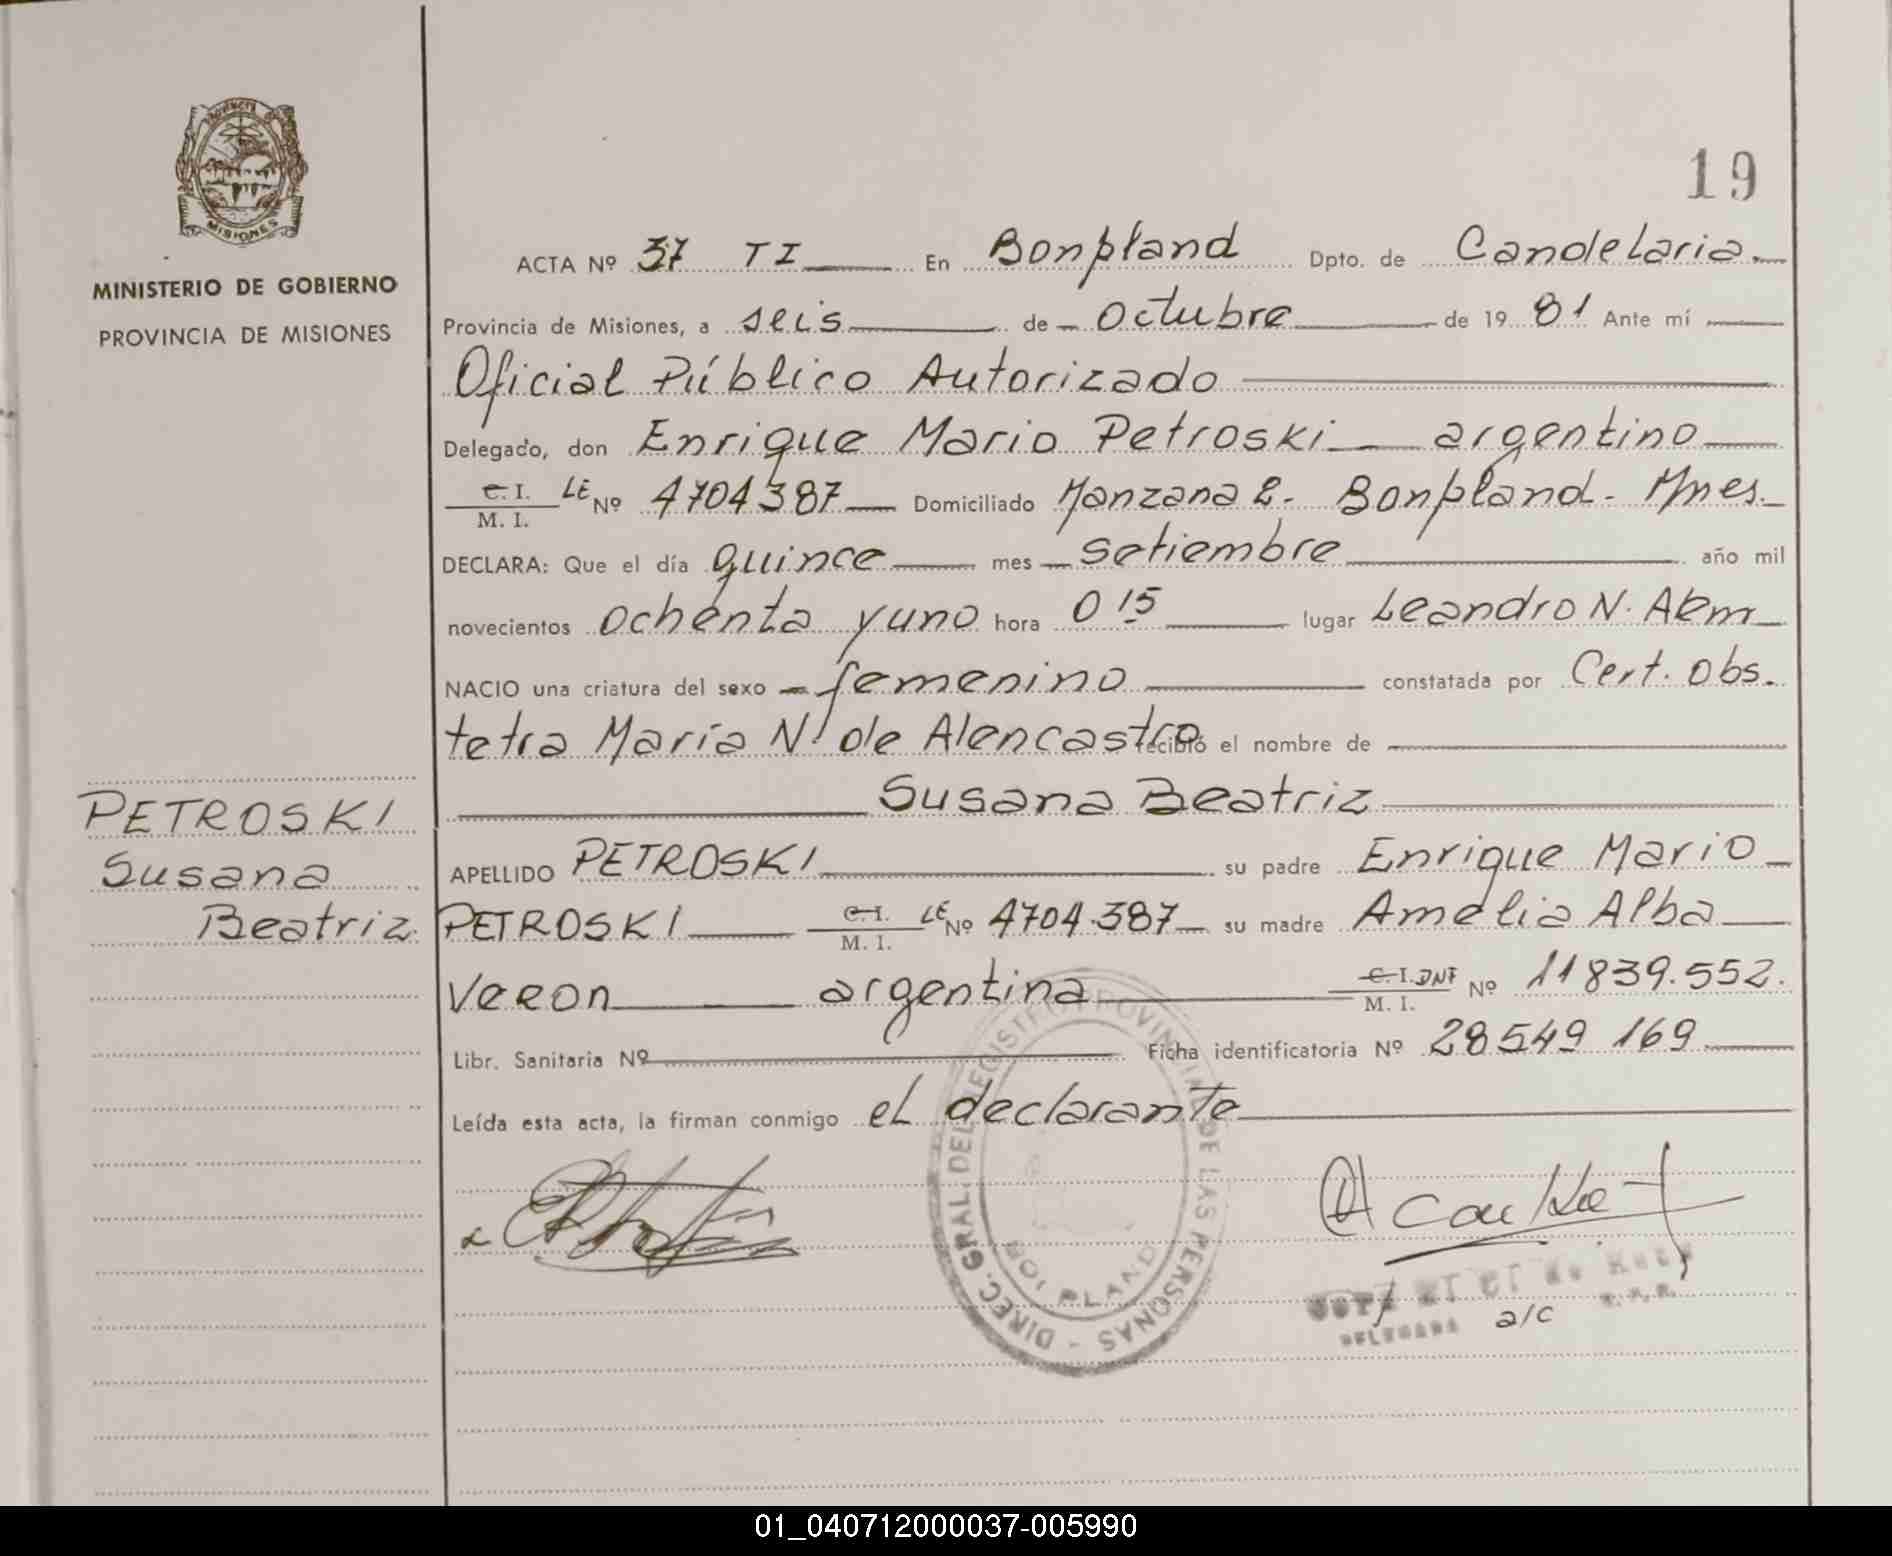 PROVINCIA DE
MISIONES
MINISTERIO DE GOBIERNO
PROVINCIA DE MISIONES
19
ACTA Nº 37 TI En Bonpland Dpto. de Candelaria.
Provincia de Misiones, a seis de Octubre de 19 81 Ante mí
Oficial Público Autorizado
Delegado, don Enrique Mario Petroski argentino
C. I. LE Nº 4704387 Domiciliado Manzana 2. Bonpland. Mnes.
M. I.
DECLARA: Que el día quince mes setiembre año mil
novecientos ochenta y uno hora 0 15 lugar Leandro N. Alem
NACIO una criatura del sexo femenino constatada por Cert. Obs.
tetra María N. de Alencastro recibió el nombre de
Susana Beatriz
PETROSKI
Susana
Beatriz
APELLIDO PETROSKI su padre Enrique Mario
PETROSKI C. I. LE Nº 4704.387 su madre Amelia Alba
M. I.
Veron argentina C. I. DNI Nº 11839.552.
M. I.
Libr. Sanitaria Nº Ficha identificatoria Nº 28549 169
Leída esta acta, la firman conmigo el declarante
DIREC. GRAL. DEL REGISTRO PROVINCIAL DE LAS PERSONAS
BONPLAND
DELEGADA a/c
01_040712000037-005990